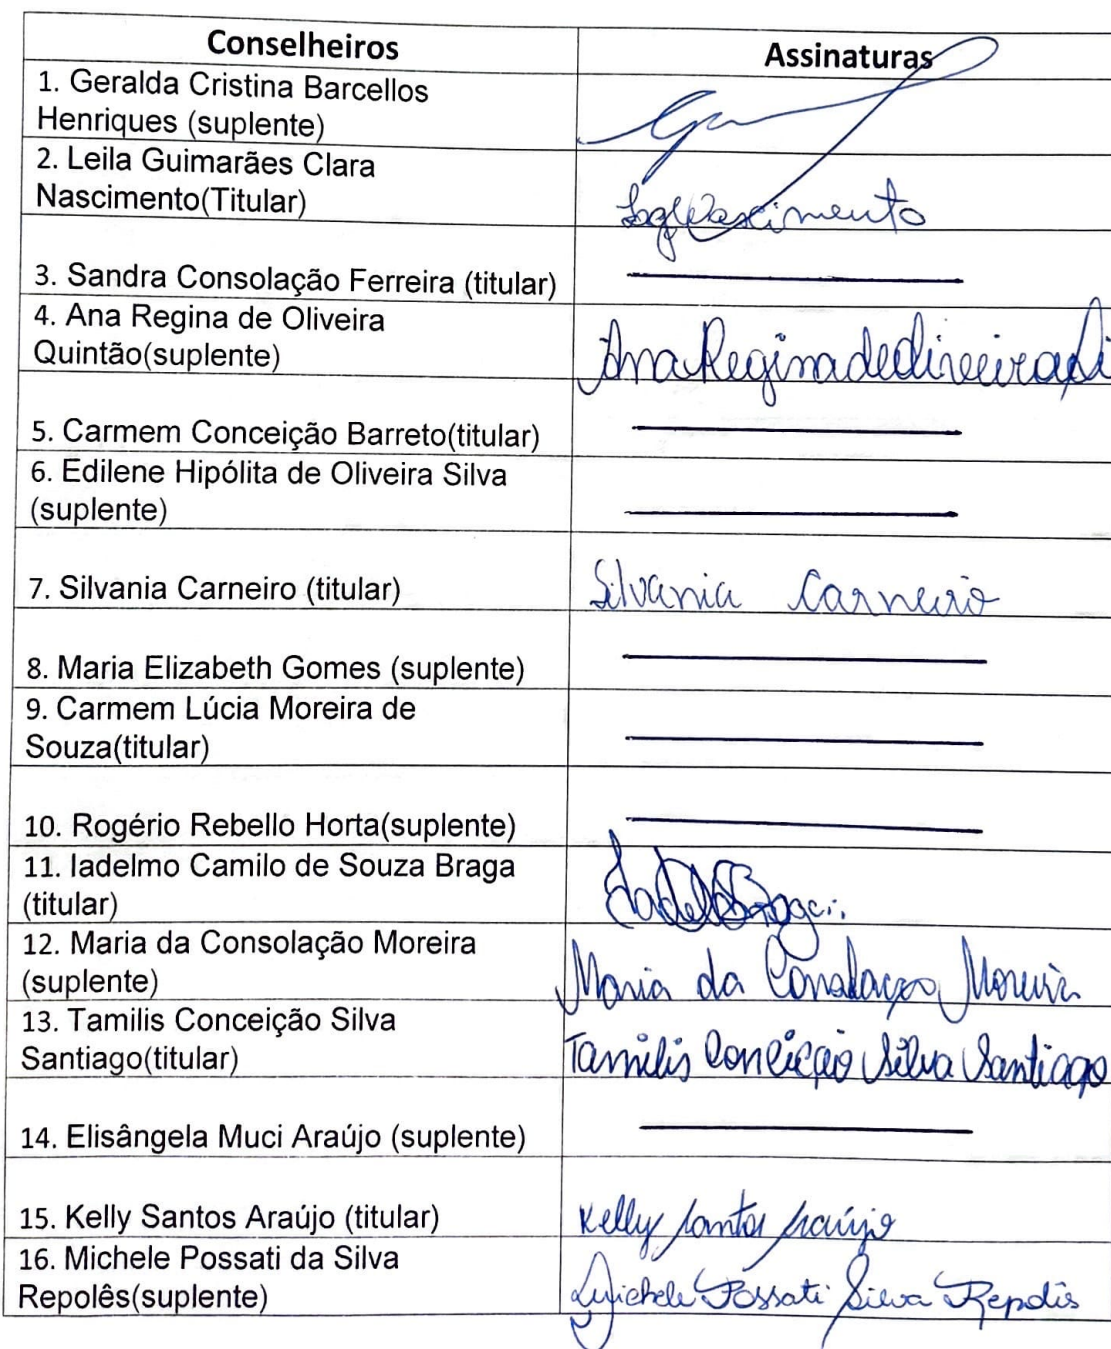 Conselheiros Assinaturas
1. Geralda Cristina Barcellos
Henriques (suplente)
2. Leila Guimarães Clara
Nascimento(Titular)
Nascimento
3. Sandra Consolação Ferreira (titular)
4. Ana Regina de Oliveira
Quintão(suplente)
Ana Regina de Oliveira
5. Carmem Conceição Barreto(titular)
6. Edilene Hipólita de Oliveira Silva
(suplente)
7. Silvania Carneiro (titular) Silvania Carneiro
8. Maria Elizabeth Gomes (suplente)
9. Carmem Lúcia Moreira de
Souza(titular)
10. Rogério Rebello Horta(suplente)
11. Iadelmo Camilo de Souza Braga
(titular)
12. Maria da Consolação Moreira
(suplente)
Maria da Consolação Moreira
13. Tamilis Conceição Silva
Santiago(titular)
Tamilis Conceição Silva Santiago
14. Elisângela Muci Araújo (suplente)
15. Kelly Santos Araújo (titular) Kelly Santos Araújo
16. Michele Possati da Silva
Repolês(suplente)
Michele Possati Silva Repolês